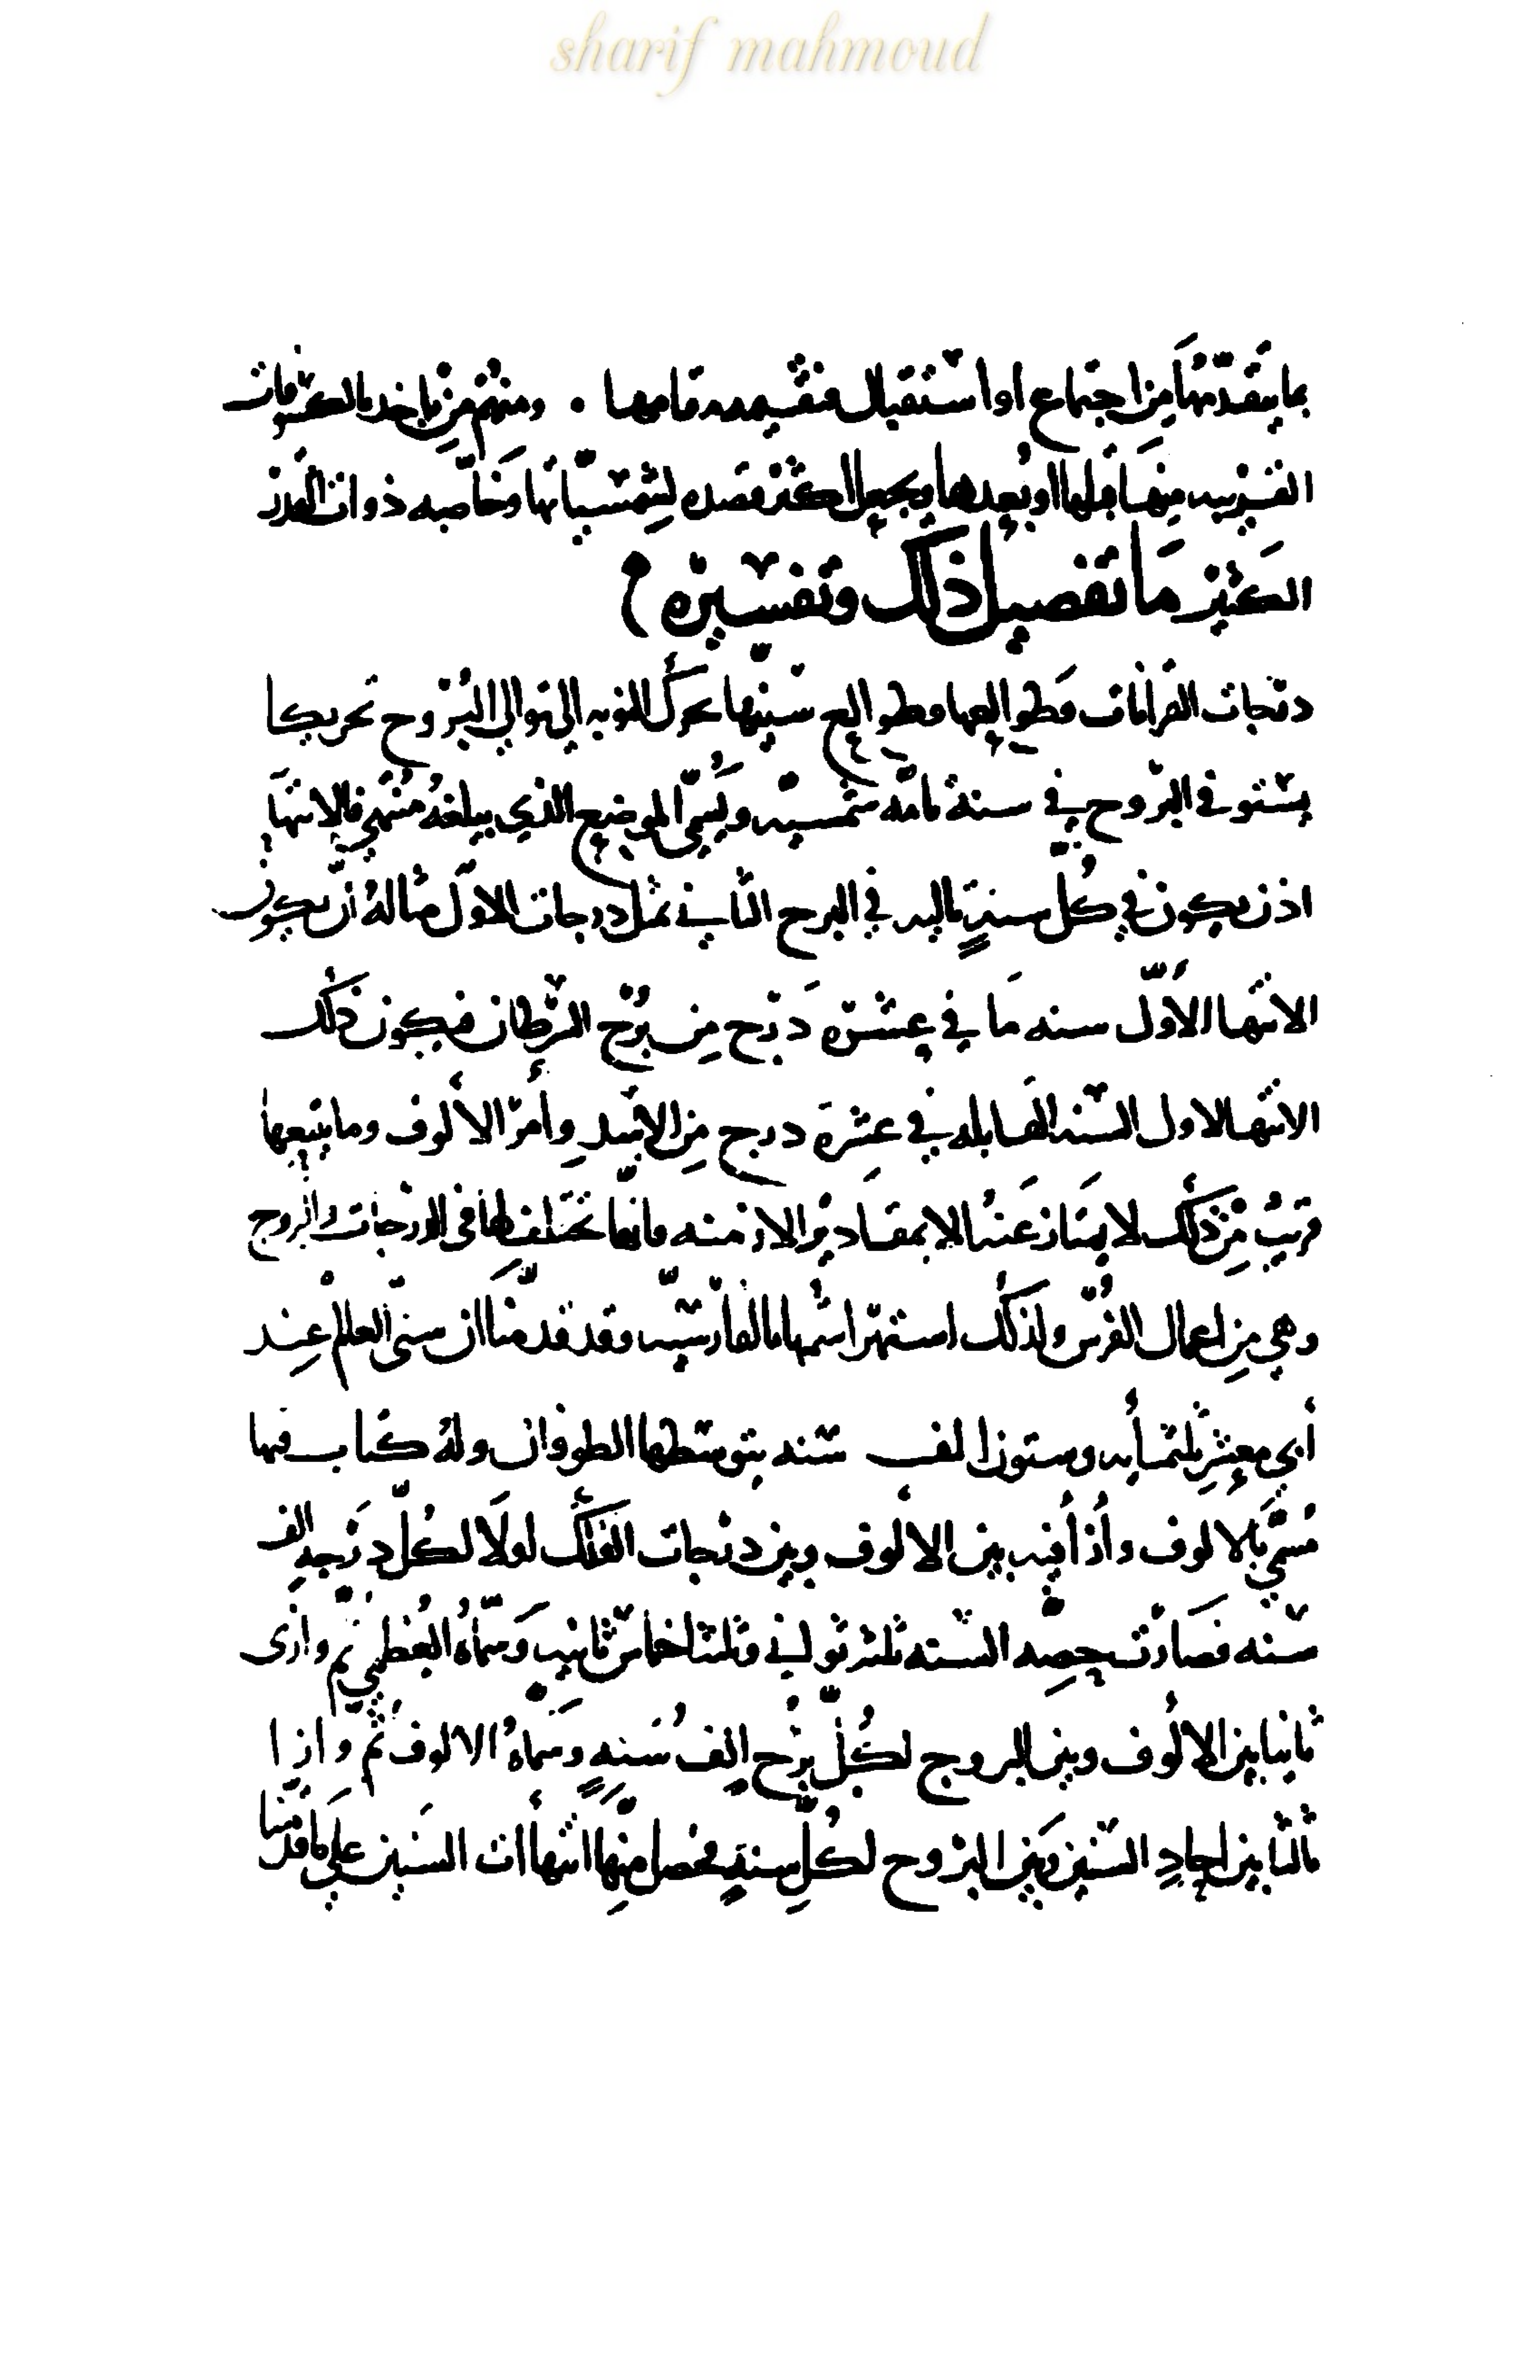 sharif mahmoud
بما يتقدّمهَا مِن اجتماع او استقبال فيقيمه مقامها ۰ ومنهُم مَن ياخذ بالكسوفات
القريبه مِنهَا قبلها او بُعدها ويجعل اكثر قصده لِشمسيّاتها وخاصّه ذوات القدر
الكثير مَا تفصيل ذلك وتفسيره
درجات القرانات وَطوالعها وطوالع سنيها تحرك النوبه الى توالى البُروج تحريكا
يستوفى البروج في سنة تامّه شمسيه ويُسمّى الموضع الذي يبلغهُ مُنتهى فالانتهَا
اذن يكون في كُل سنةٍ تاليه في البرج الثاني بمثل درجات الاوّل مثالهُ ان يكون
الانتها الأوّل سنه مَا في عشرَه دَرَج مِن بُرج السّرطان فيكون ذلك
الانتها الاول السّنه القَابله في عشِرَه درج مِن الاسَدِ وأمرُ الألوف وما يتبعها
قريبُ مِن ذلك لا يمتاز عَنهُ الا بمقَادير الازمنه فانها تختلف لها فى الدرجات والبروج
وهي مِن اعمال الفُرس ولذلك استهرّ اسمها بالفارسيّه وقد قدّمنا ان سنى العالم عِند
أبي معشرِ ثلثمأيه وستون الف سنه يتوسّطها الطوفان ولهُ كتاب فيها
مُسمّى بالالوف وأزأ فيه بين الألوف وبين درجات الفلك اولاً لكُلّ دَرَجهٍ الف
سنه فصَارت حِصّه السّنه ثلث ثوانى وثلثا اخماس ثانيه وَسمّاهُ العُظمى ثم وازى
ثانيا بين الالُوف وبين البروج لكُلّ بُرج الفُ سَنهٍ وسمَاهُ الالوف ثُم وازا
ثالثا بين احادِ السّنين وَبين البرُوج لكُلِّ سنهٍ فحصل مِنّها انتهاأت السَنين على مَا قدمنا